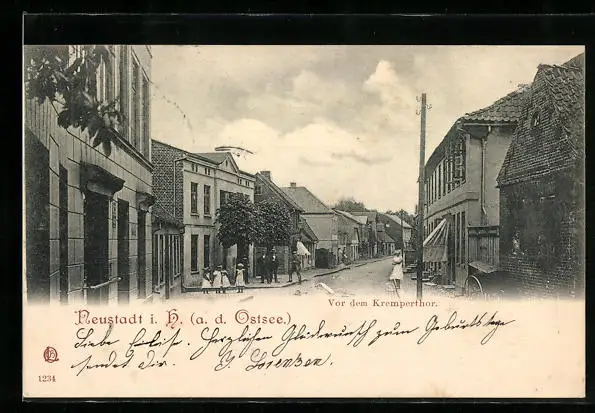 Vor dem Kremperthor.
Neustadt i. H. (a. d. Ostsee.)
Liebe Herzlichen Glückwunsch zum Geburtstage
sendet Dir. J. Lorenzen.
1234